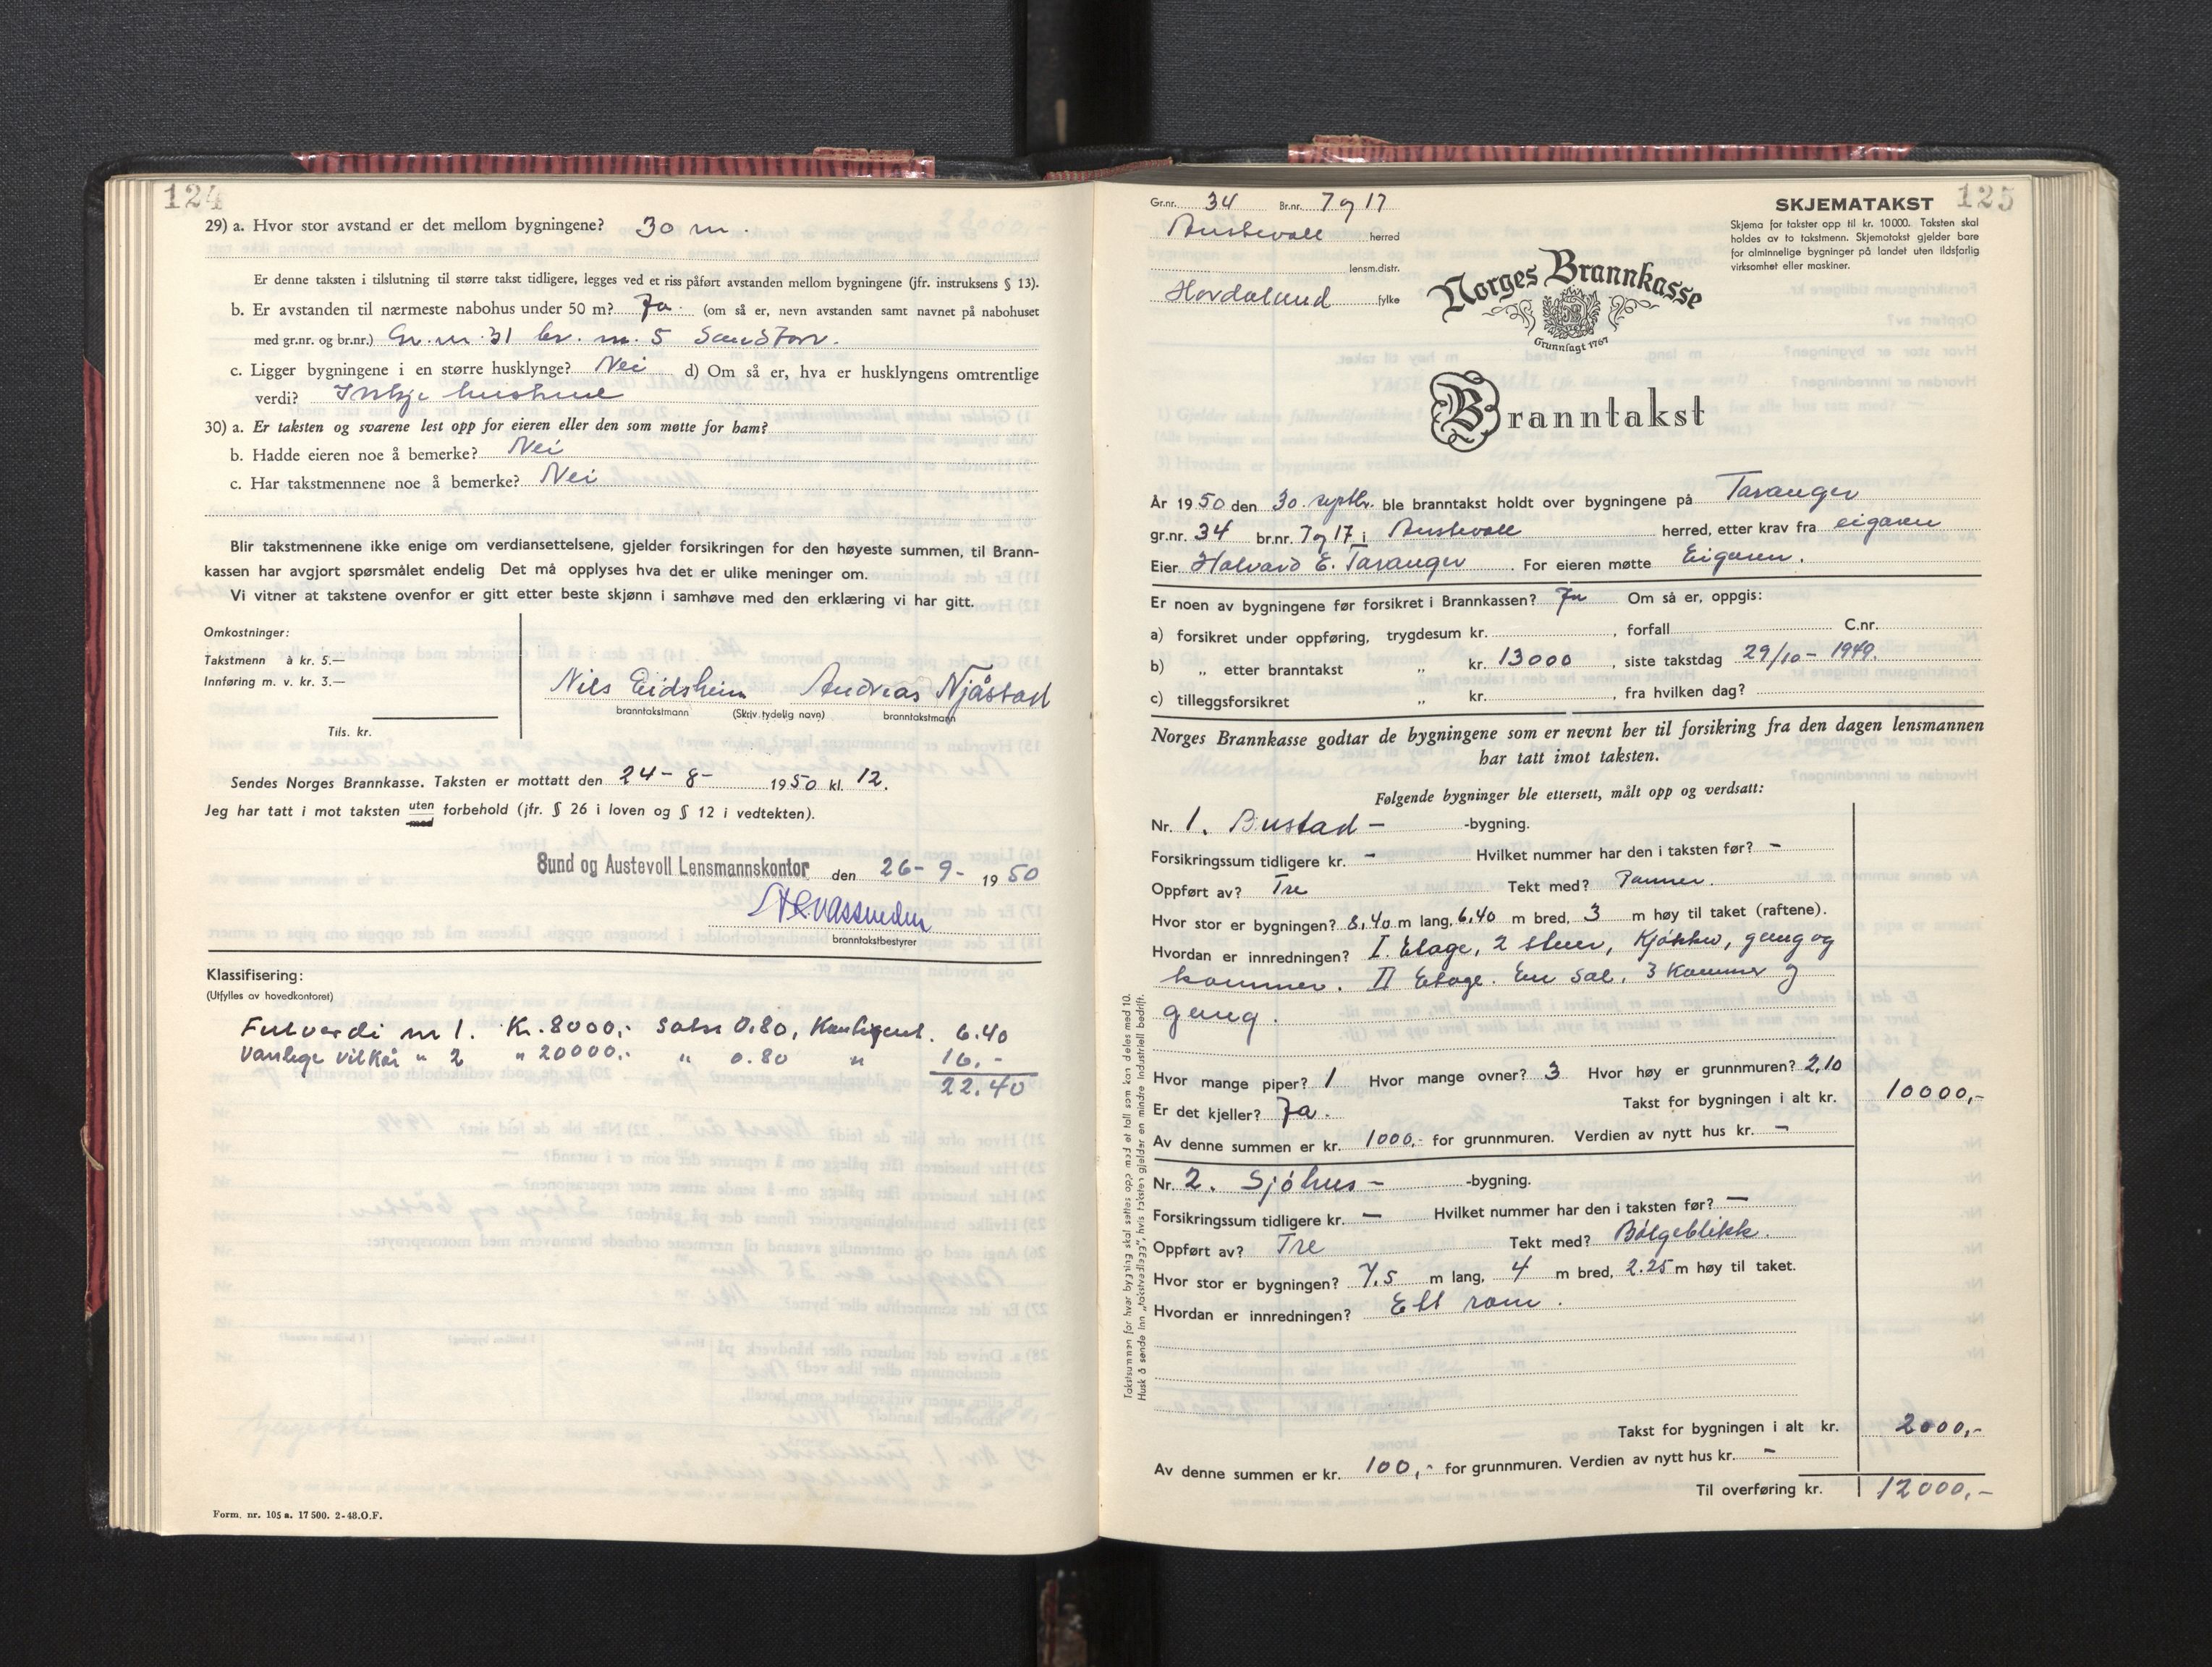 124
29) a. Hvor stor avstand er det mellom bygningene? 30 m.
Er denne taksten i tilslutning til større takst tidligere, legges ved et riss påført avstanden mellom bygningene (jfr. instruksens § 13).
b. Er avstanden til nærmeste nabohus under 50 m? Ja. (om så er, nevn avstanden samt navnet på nabohuset
med gr.nr. og br.nr.) Gr. nr. 31 br. nr. 5 Sandtorv.
c. Ligger bygningene i en større husklynge? Nei d) Om så er, hva er husklyngens omtrentlige
verdi?
30) a. Er taksten og svarene lest opp for eieren eller den som møtte for ham?
b. Hadde eieren noe å bemerke? Nei
c. Har takstmennene noe å bemerke? Nei
Blir takstmennene ikke enige om verdiansettelsene, gjelder forsikringen for den høyeste summen, til Brann-
kassen har avgjort spørsmålet endelig Det må opplyses hva det er ulike meninger om.
Vi vitner at takstene ovenfor er gitt etter beste skjønn i samhøve med den erklæring vi har gitt.
Omkostninger:
Takstmenn à kr. 5.—
Innføring m. v. kr. 3.—
Tils. kr.
Nils Eidsheim Andreas Njåstad
branntakstmann (Skriv tydelig navn) branntakstmann
Sendes Norges Brannkasse. Taksten er mottatt den 24-8- 1950 kl. 12.
Jeg har tatt i mot taksten uten med forbehold (jfr. § 26 i loven og § 12 i vedtekten).
Sund og Austevoll Lensmannskontor den 26-9- 1950
branntakstbestyrer
Klassifisering:
(Utfylles av hovedkontoret)
Fulverdi nr 1. Kr. 8000,- Sats 0.80, Kontigent. 6.40
Vanlige vilkår " 2 " 20000,- " 0.80 " 16,-
22.40
Form. nr. 105 a. 17 500. 2-48.O.F.
125
Gr.nr. 34 Br.nr. 7 og 17
Austevoll herred
lensm.distr.
Hordaland fylke
SKJEMATAKST
Skjema for takster opp til kr. 10000. Taksten skal
holdes av to takstmenn. Skjematakst gjelder bare
for alminnelige bygninger på landet uten ildsfarlig
virksomhet eller maskiner.
Norges Brannkasse
Grunnlagt 1767
Branntakst
År 1950 den 30 septbr. ble branntakst holdt over bygningene på Taranger
gr.nr. 34 br.nr. 7 og 17 i Austevoll herred, etter krav fra eigaren
Eier Halvard E. Taranger For eieren møtte Eigaren.
Er noen av bygningene før forsikret i Brannkassen? Ja Om så er, oppgis:
a) forsikret under oppføring, trygdesum kr. , forfall C.nr.
b) „ etter branntakst „ kr. 13000 , siste takstdag 29/10-1940.
c) tilleggsforsikret „ kr. , fra hvilken dag?
Norges Brannkasse godtar de bygningene som er nevnt her til forsikring fra den dagen lensmannen
har tatt imot taksten.
Følgende bygninger ble ettersett, målt opp og verdsatt:
Nr. 1. Bustad - -bygning.
Forsikringssum tidligere kr. - Hvilket nummer har den i taksten før? -
Oppført av? Tre Tekt med? Panner.
Hvor stor er bygningen? 8,40 m lang, 6.40 m bred, 3 m høy til taket (raftene).
Hvordan er innredningen? I. Etage, 2 stuer, Kjøkken, gang og
kammer. II Etage. En Sal, 3 Kammer og
gang.
Hvor mange piper? 1 Hvor mange ovner? 3 Hvor høy er grunnmuren? 2,10
Er det kjeller? Ja. Takst for bygningen i alt kr. 10000,-
Av denne summen er kr. 1000,- for grunnmuren. Verdien av nytt hus kr. -
Nr. 2. Sjøhus - -bygning.
Forsikringssum tidligere kr. - Hvilket nummer har den i taksten før? -
Oppført av? Tre Tekt med? Bølgeblikk.
Hvor stor er bygningen? 7,5 m lang, 4 m bred, 2.25 m høy til taket.
Hvordan er innredningen? Ett rom.
Takst for bygningen i alt kr. 2000,-
Av denne summen er kr. 100,- for grunnmuren. Verdien av nytt hus kr. -
Til overføring kr. 12000,-
Takstsummen for hver bygning skal settes opp med et tall som kan deles med 10.
Husk å sende inn „takstvedlegg", hvis taksten gjelder en mindre industriell bedrift.